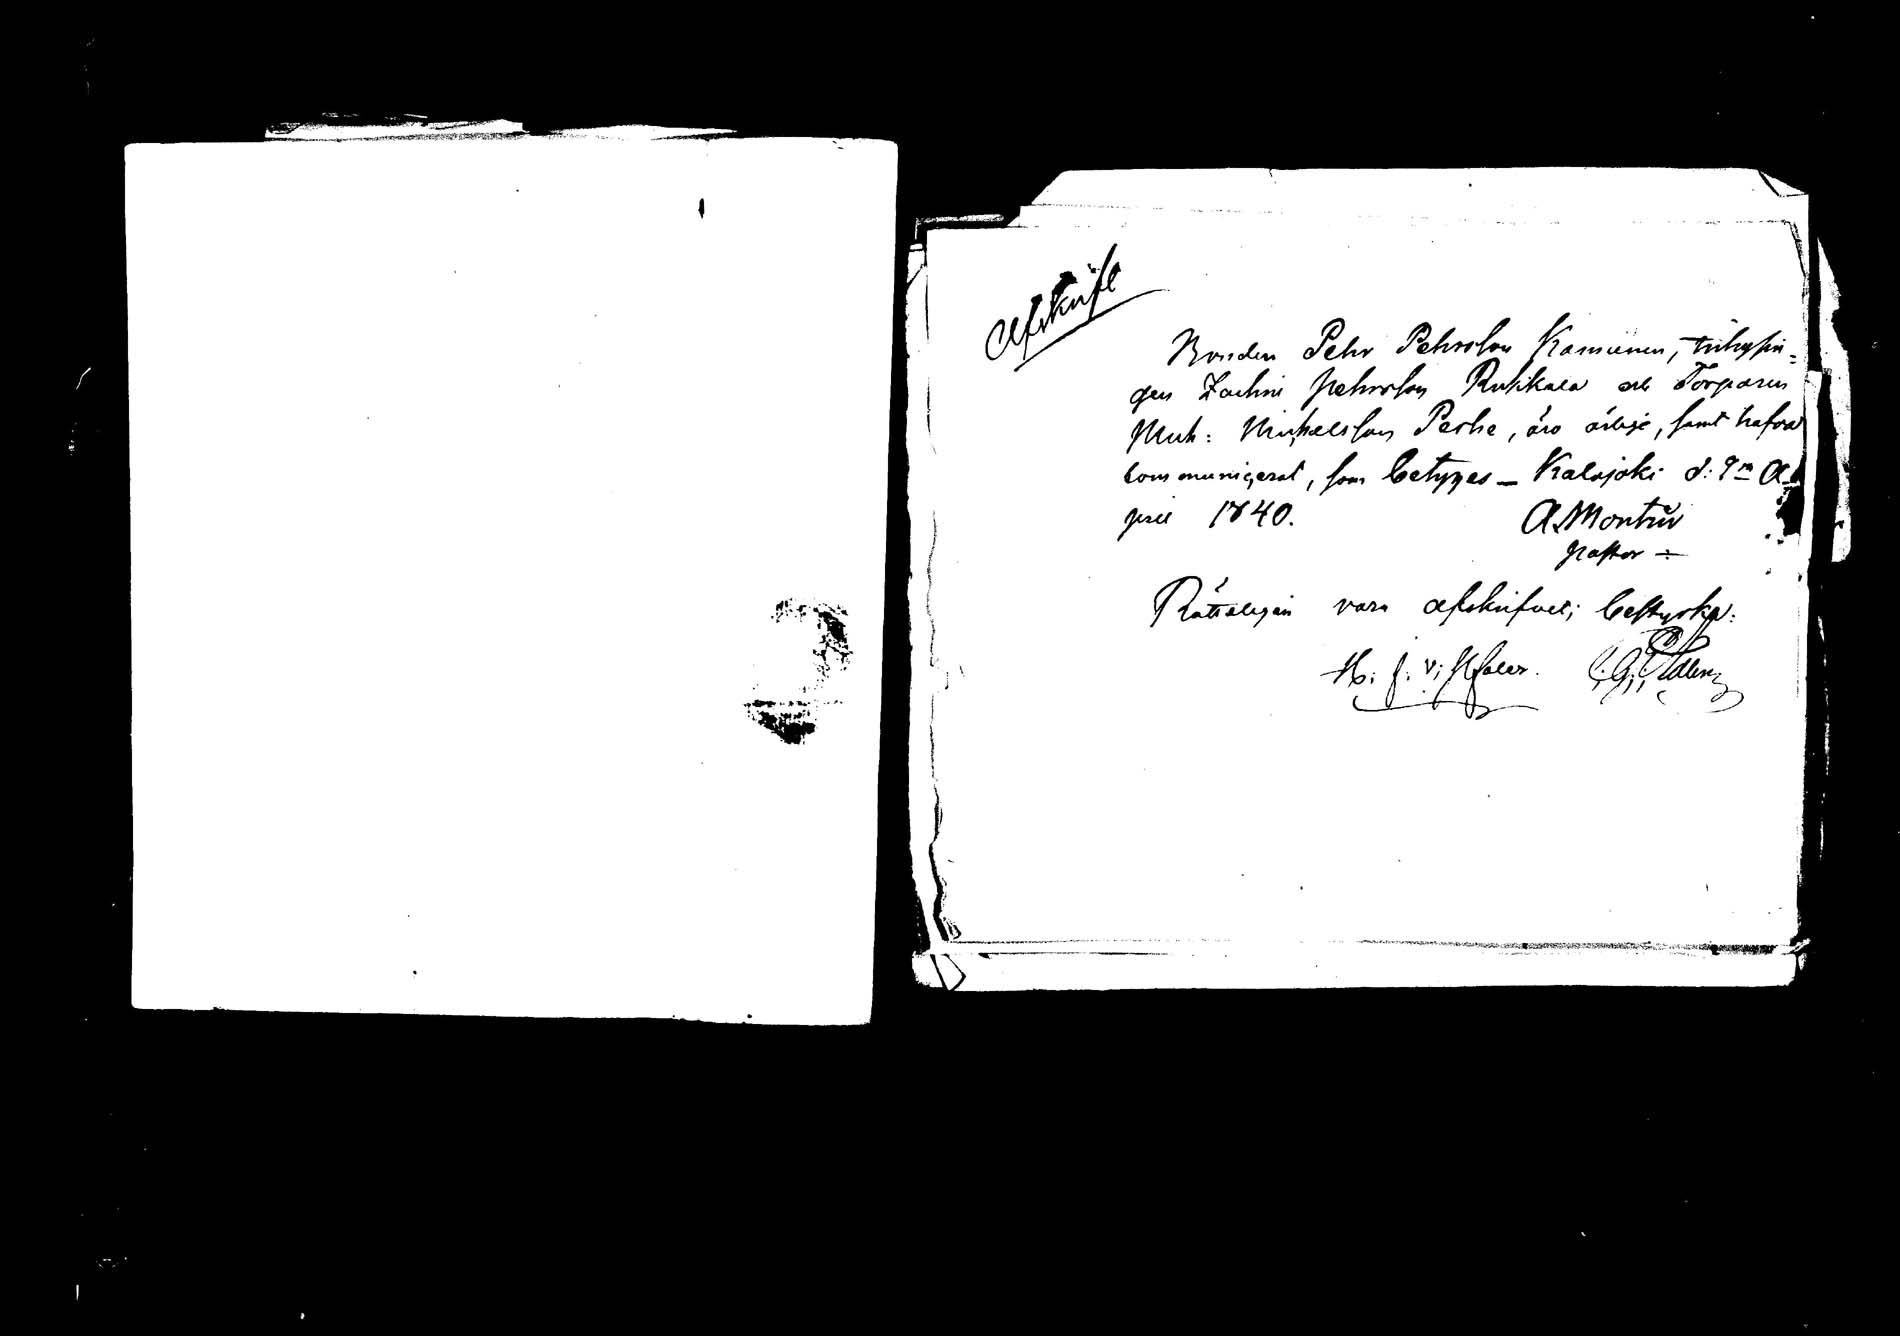 Afskrift
Bonden Pehr Pehrsson Kamunen, Inhysin=
gen Zachri Pehrsson Ruhkala och Torparen
Mich: Michaelsson Perhe, äro ärlige, samt hafva
communicerat, som betyges – Kalajoki d: 9 A=
pril 1840. A. Montin
Pastor
Rätteligen vara afskrifvet; bestyrka: